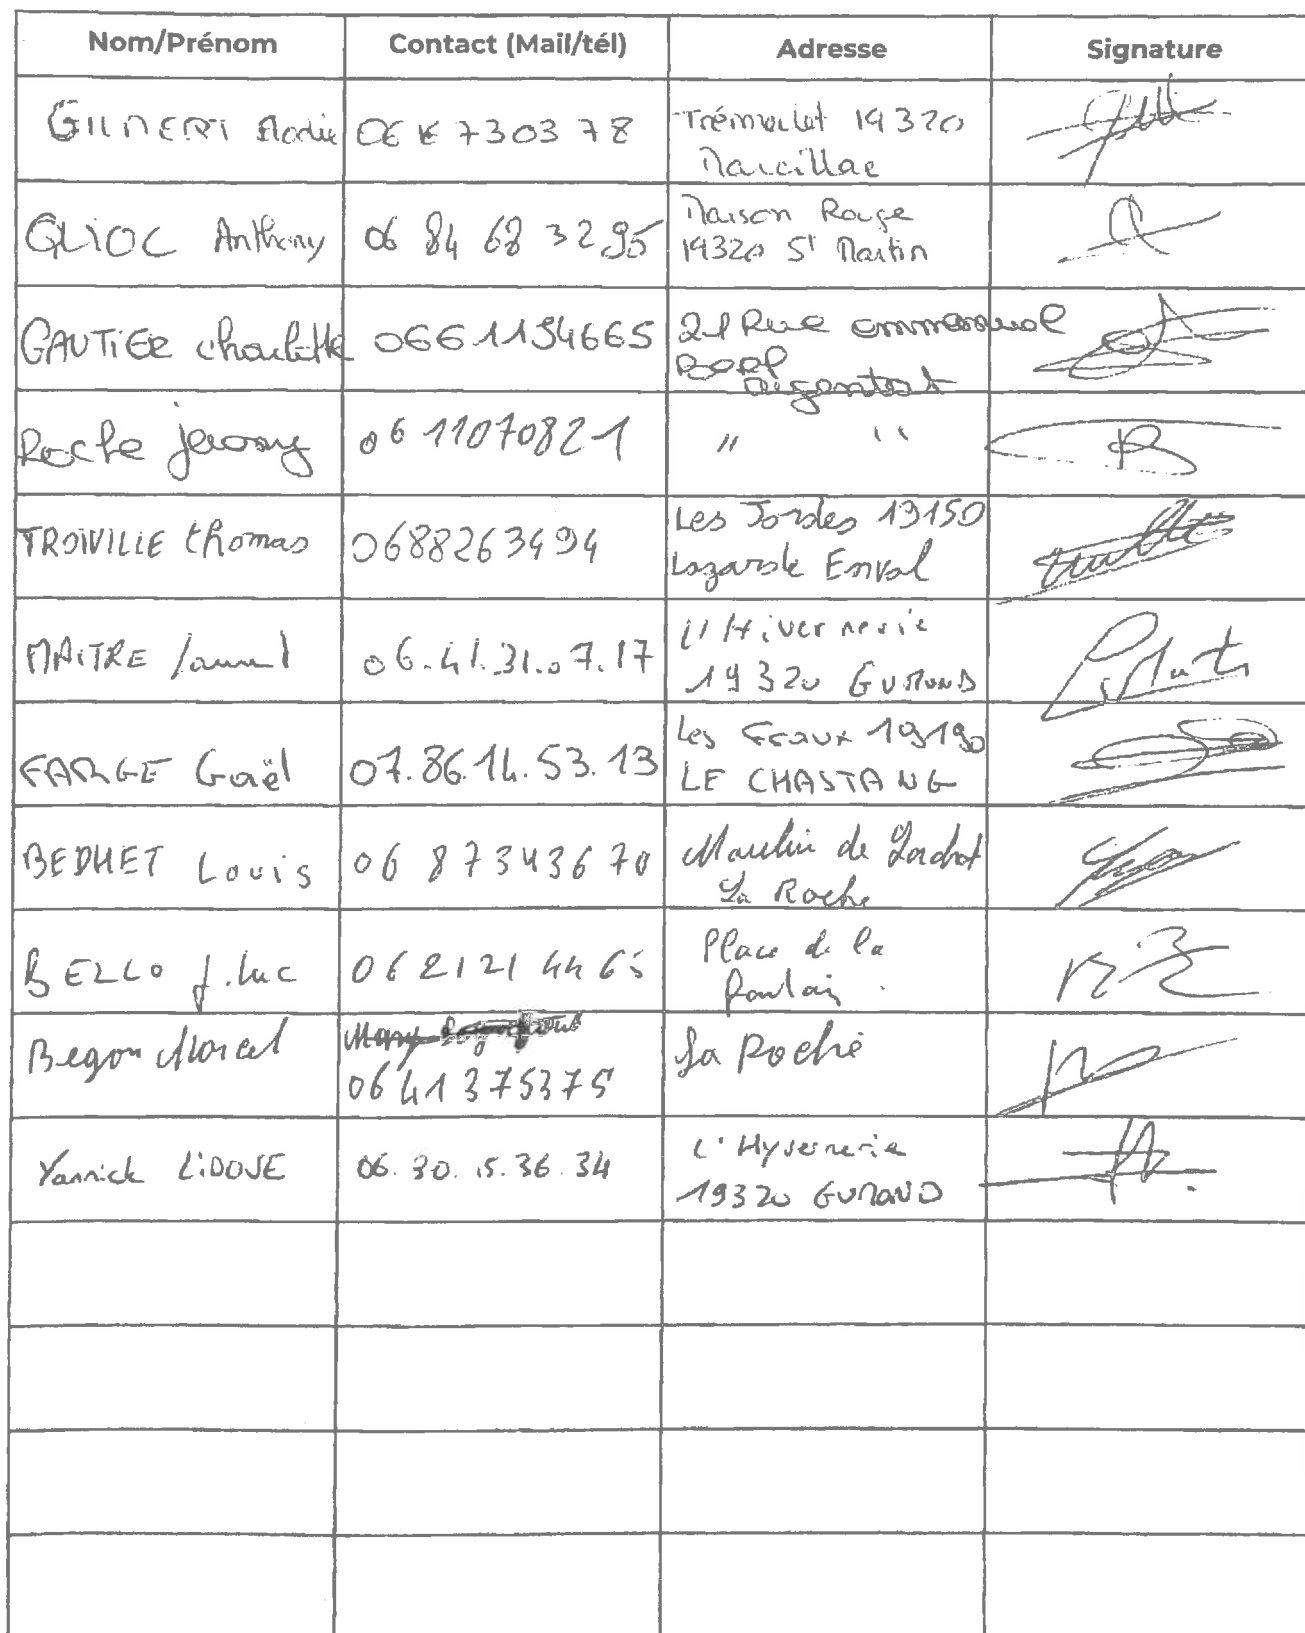 Nom/Prénom Contact (Mail/tél) Adresse Signature
06 7303 78 Trémoulet 19320
Marcillac
GLIOC Anthony 06 84 68 32 95 Maison Rouge
19320 St Martin
GAUTIER charlotte 0661154665 21 Rue emmanuel
argentat
Roche jeremy 06 11070821 " "
TROIVILLE thomas 0688263494 Les Jordes 19150
Lagarde Enval
MAITRE 06.41.31.07.17 L'Hivernerie
19320 GUMOND
FARGE Gaël 07.86.14.53.13 Les Fraux 19190
LE CHASTANG
BEDHET Louis 06 87343670 Moulin de
La Roche
BELLO J.Luc 0621214465 Place de la
Begon Marcel 0641375375 La Roche
Yannick LIDOVE 06.30.15.36.34 L'Hysernerie
19320 GUMOND